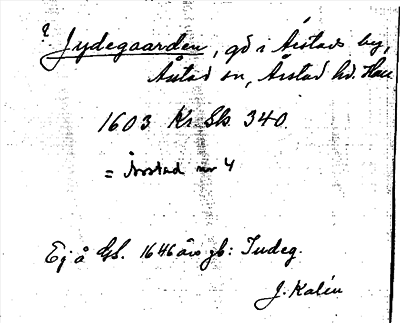 ? Jydegaarden, gd i Årstads by,
Årstad sn, Årstad hd. Hall
1603 Kr. Sk. 340.
= Årstad nr 4
Ej å GS. 1646 års jb: Judeg.
J. Kalén